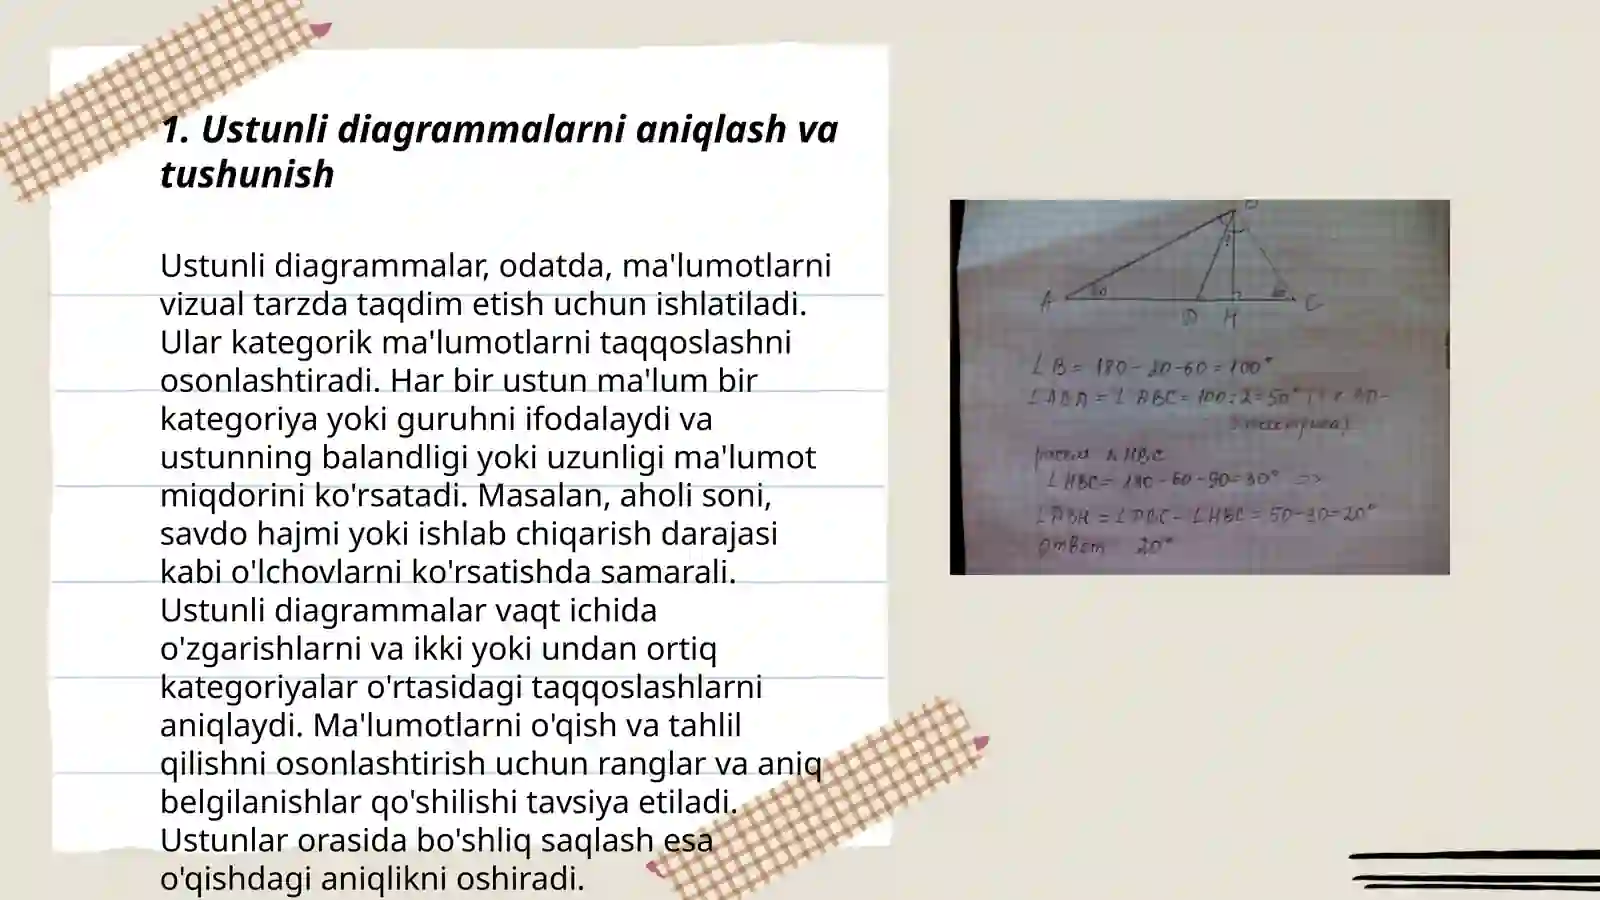 1. Ustunli diagrammalarni aniqlash va
tushunish
Ustunli diagrammalar, odatda, ma'lumotlarni
vizual tarzda taqdim etish uchun ishlatiladi.
Ular kategorik ma'lumotlarni taqqoslashni
osonlashtiradi. Har bir ustun ma'lum bir
kategoriya yoki guruhni ifodalaydi va
ustunning balandligi yoki uzunligi ma'lumot
miqdorini ko'rsatadi. Masalan, aholi soni,
savdo hajmi yoki ishlab chiqarish darajasi
kabi o'lchovlarni ko'rsatishda samarali.
Ustunli diagrammalar vaqt ichida
o'zgarishlarni va ikki yoki undan ortiq
kategoriyalar o'rtasidagi taqqoslashlarni
aniqlaydi. Ma'lumotlarni o'qish va tahlil
qilishni osonlashtirish uchun ranglar va aniq
belgilanishlar qo'shilishi tavsiya etiladi.
Ustunlar orasida bo'shliq saqlash esa
o'qishdagi aniqlikni oshiradi.
A
C
D H
∠B = 180 - 20 - 60 = 100°
= 100:2 = 50°
∠HBC = 180 - 60 - 90 = 30° =>
∠DBH = ∠DBC - ∠HBC = 50 - 30 = 20°
Ответ 20°